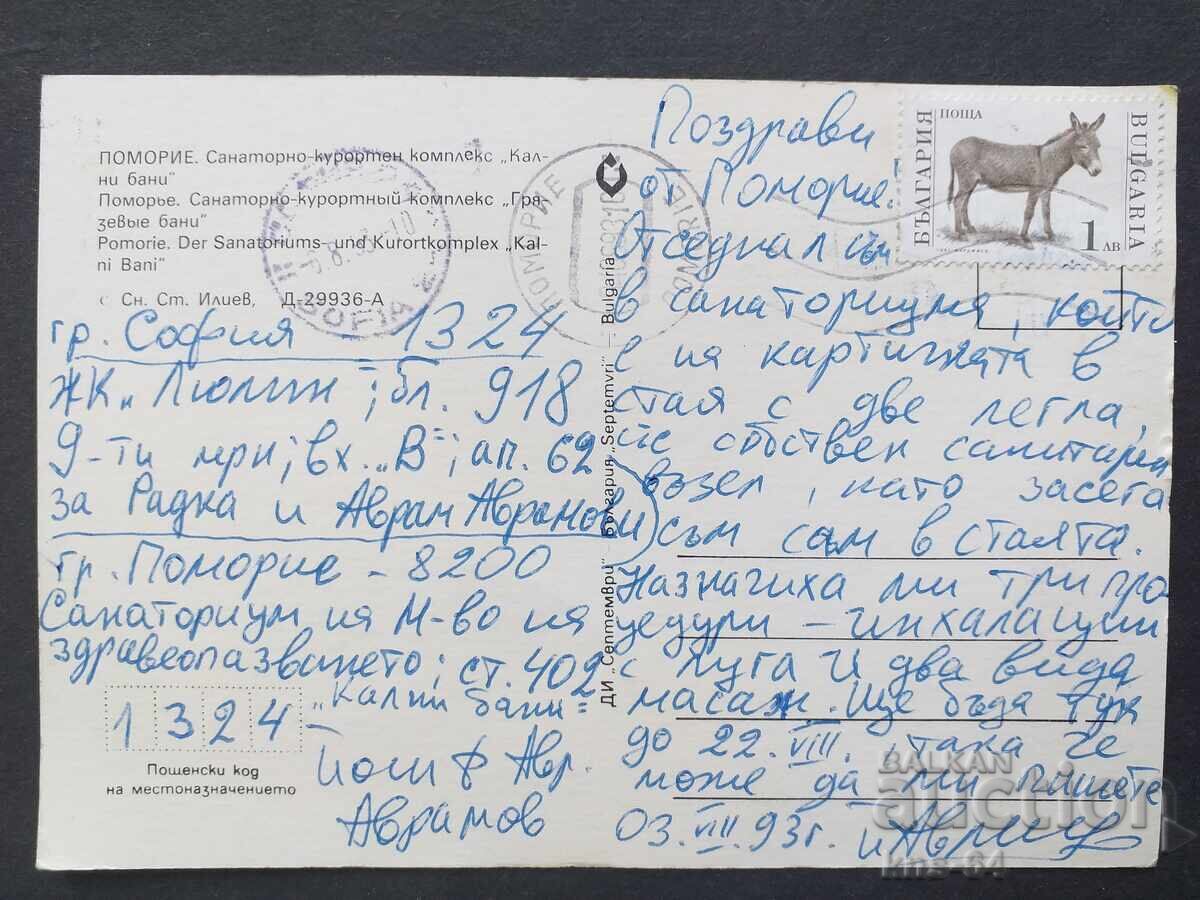 ПОМОРИЕ. Санаторно-курортен комплекс „Кал-
ни бани"
Поморье. Санаторно-курортный комплекс „Гря-
зевые бани"
Pomorie. Der Sanatoriums- und Kurortkomplex „Kal-
ni Bani"
Сн. Ст. Илиев, Д-29936-А
гр. София 1324
ЖК „Люлин"; бл. 918
9-ти мрн; вх. „В"; ап. 62
за Радка и Аврам Аврамови
гр. Поморие - 8200
Санаториум на М-во на
здравеопазването; ст. 402
„Кални бани"
Йосиф Авр.
Аврамов
1 3 2 4
Пощенски код
на местоназначението
ДИ „Септември" - България „Septemvri" - Bulgaria
ПОМОРИЕ
POMORIE
SOFIA
БЪЛГАРИЯ
ПОЩА
BULGARIA
1 ЛВ
Поздрави
от Поморие!
Отседнал съм
в санаториума, който
е на картичката в
стая с две легла,
със собствен санитарен
възел, като засега
съм сам в стаята.
Назначиха ми три про-
цедури - инхалации
с луга и два вида
масаж. Ще бъда тук
до 22. VIII., така че
може да ми пишете
03. VIII. 93г.
BALKAN
auction
kns-64